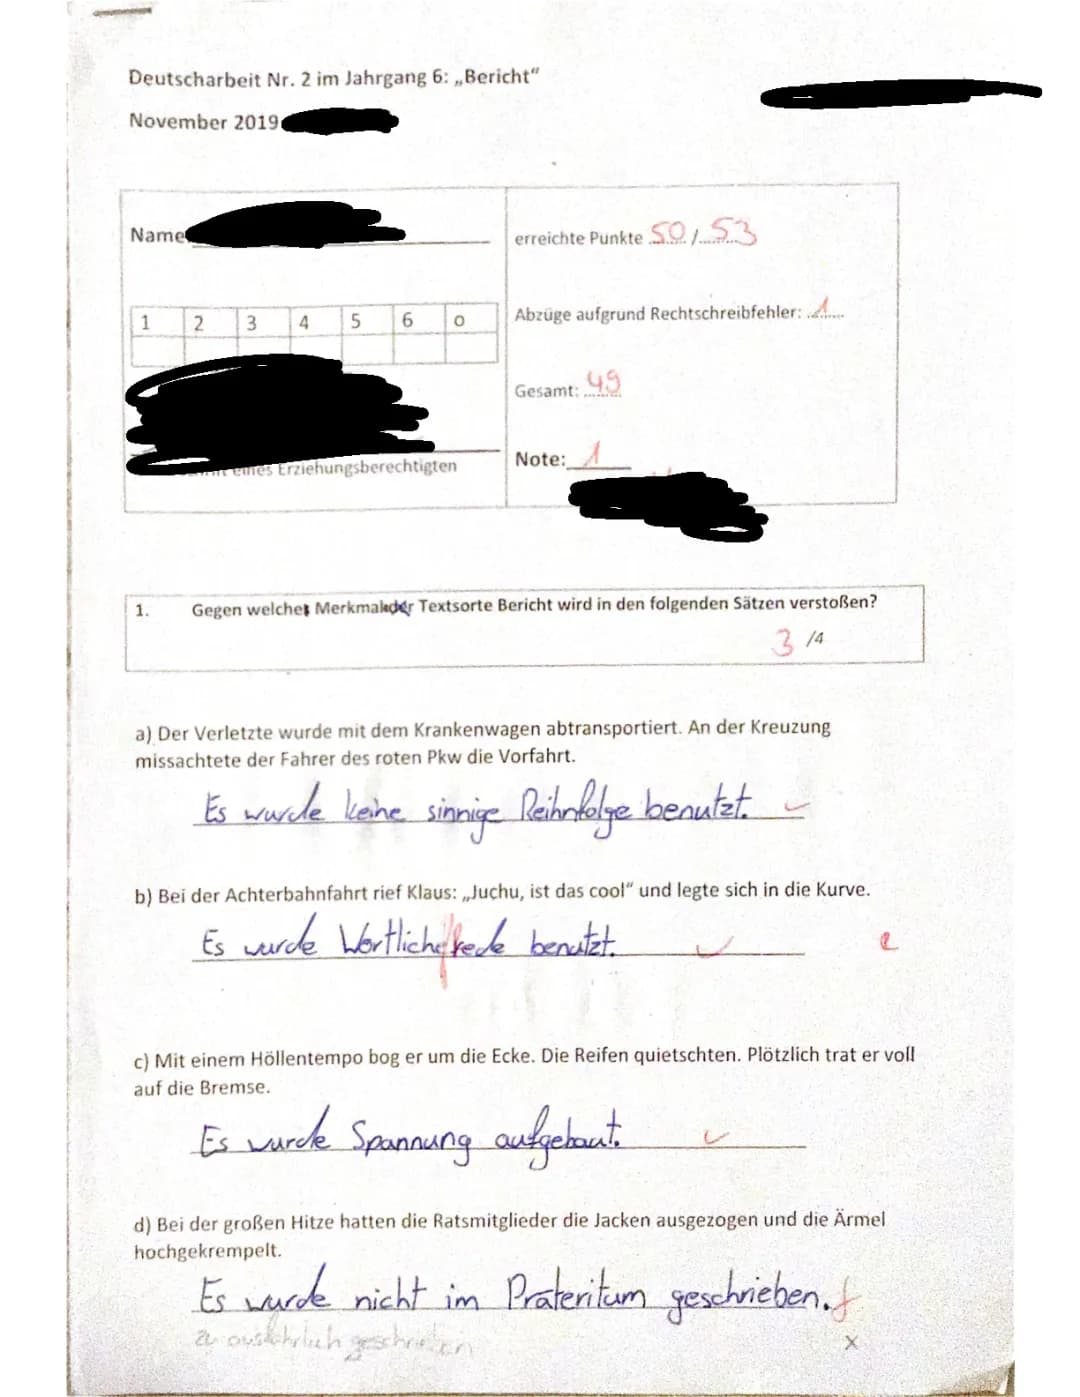 Deutscharbeit Nr. 2 im Jahrgang 6: „Bericht"
November 2019
Name
erreichte Punkte 50 / 53
1 2 3 4 5 6 0
Abzüge aufgrund Rechtschreibfehler: 1
Gesamt: 49
Note: 1
eines Erziehungsberechtigten
1. Gegen welches Merkmal der Textsorte Bericht wird in den folgenden Sätzen verstoßen?
3 /4
a) Der Verletzte wurde mit dem Krankenwagen abtransportiert. An der Kreuzung
missachtete der Fahrer des roten Pkw die Vorfahrt.
Es wurde keine sinnige Reihnfolge benutzt.
b) Bei der Achterbahnfahrt rief Klaus: „Juchu, ist das cool" und legte sich in die Kurve.
Es wurde Wörtliche rede benutzt.
c) Mit einem Höllentempo bog er um die Ecke. Die Reifen quietschten. Plötzlich trat er voll
auf die Bremse.
Es wurde Spannung aufgebaut.
d) Bei der großen Hitze hatten die Ratsmitglieder die Jacken ausgezogen und die Ärmel
hochgekrempelt.
Es wurde nicht im Präteritum geschrieben. f
zu ausführlich geschrieben
x